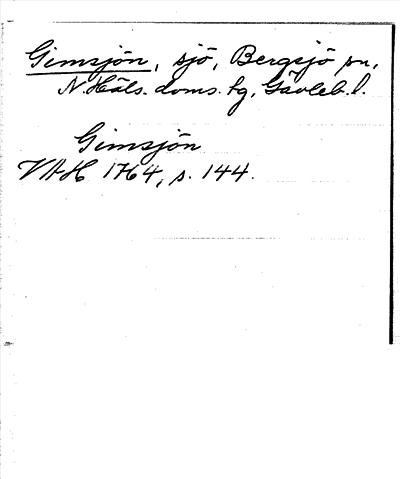 Gimsjön, sjö, Bergsjö sn,
N. Häls. doms. tg, Gävleb. l.
Gimsjön
VAH 1764, s. 144.